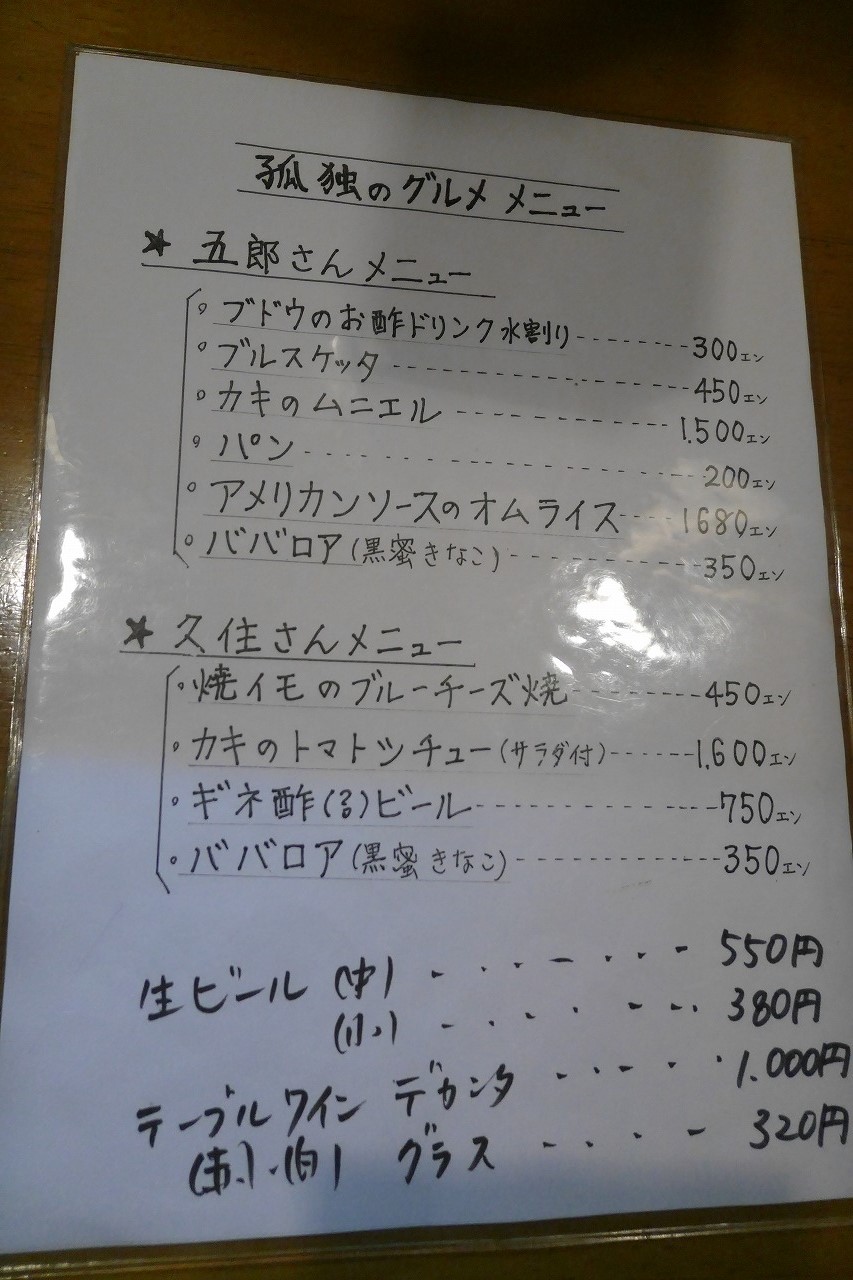 孤独のグルメ メニュー
★ 五郎さんメニュー
。ブドウのお酢ドリンク水割り--------300エン
。ブルスケッタ--------450エン
。カキのムニエル--------1.500エン
。パン--------200エン
。アメリカンソースのオムライス----1680エン
。ババロア(黒蜜きなこ)--------350エン
★ 久住さんメニュー
。焼イモのブルーチーズ焼--------450エン
。カキのトマトシチュー(サラダ付)------1.600エン
。ギネ酢(る)ビール--------750エン
。ババロア(黒蜜きなこ)--------350エン
生ビール (中) - - - - - - 550円
(小) - - - - - - 380円
テーブルワイン デカンタ - - - - - - 1.000円
(赤)・(白) グラス - - - - - 320円